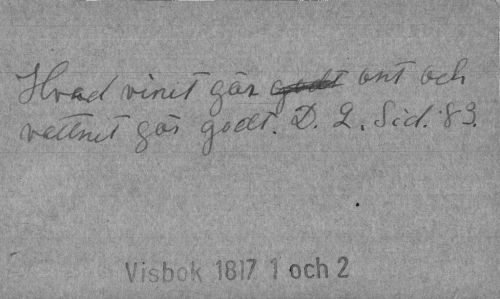 Hvad vinet gör godt ont och
vattnet gör godt. D. 2. Sid. 83.
Visbok 1817 1 och 2